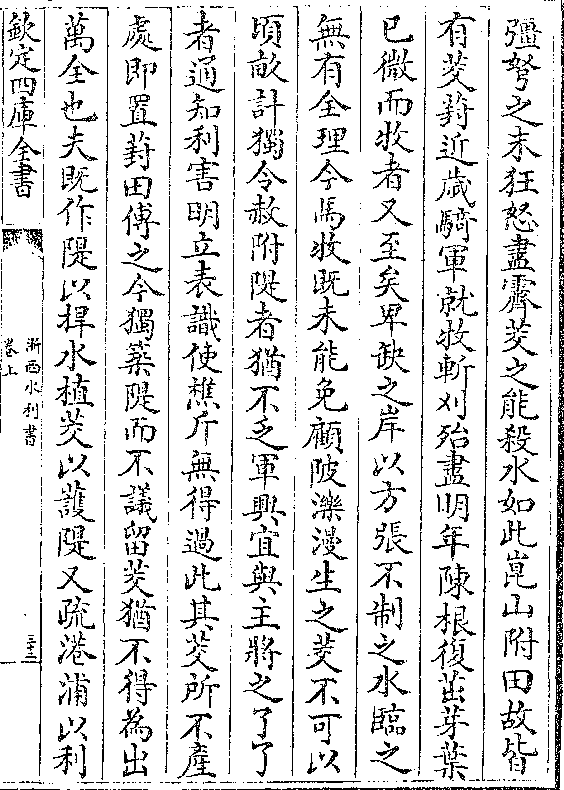 彊弩之末狂怒盡霽茭之能殺水如此崑山附田故皆
有茭葑近歲騎軍就牧斬刈殆盡明年陳根復茁芽葉
已微而牧者又至矣卑缺之岸以方張不制之水臨之
無有全理今馬牧既未能免顧陂濼漫生之茭不可以
頃畝計獨令赦附隄者猶不乏軍興宜與主將之了了
者通知利害明立表識使樵斤無得過此其茭所不產
處即置葑田傅之今獨築隄而不議留茭猶不得為出
萬全也夫既作隄以捍水植茭以護隄又疏港浦以利
欽定四庫全書
浙西水利書
卷上
三十三